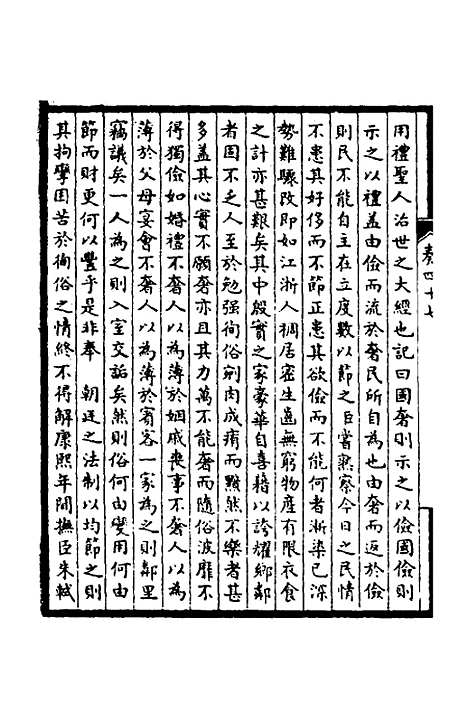 卷四十七
用禮聖人治世之大經也記曰國奢則示之以儉國儉則
示之以禮蓋由儉而流於奢民所自為也由奢而返於儉
則民不能自主在立度數以節之臣嘗熟察今日之民情
不患其好侈而不節正患其欲儉而不能何者漸染已深
勢難驟改即如江浙人稠居密生齒無窮物產有限衣食
之計亦甚艱矣其中殷實之家豪華自喜藉以誇耀鄉鄰
者固不乏人至於勉強徇俗剜肉成瘡而黯然不樂者甚
多蓋其心實不願奢亦且其力萬不能奢而隨俗波靡不
得獨儉如婚禮不奢人以為薄於姻戚喪事不奢人以為
薄於父母宴會不奢人以為薄於賓客一家為之則鄰里
竊議矣一人為之則入室交詬矣然則俗何由變用何由
節而財更何以豐乎是非奉 朝廷之法制以均節之則
其拘攣困苦於徇俗之情終不得解康熙年間撫臣朱軾